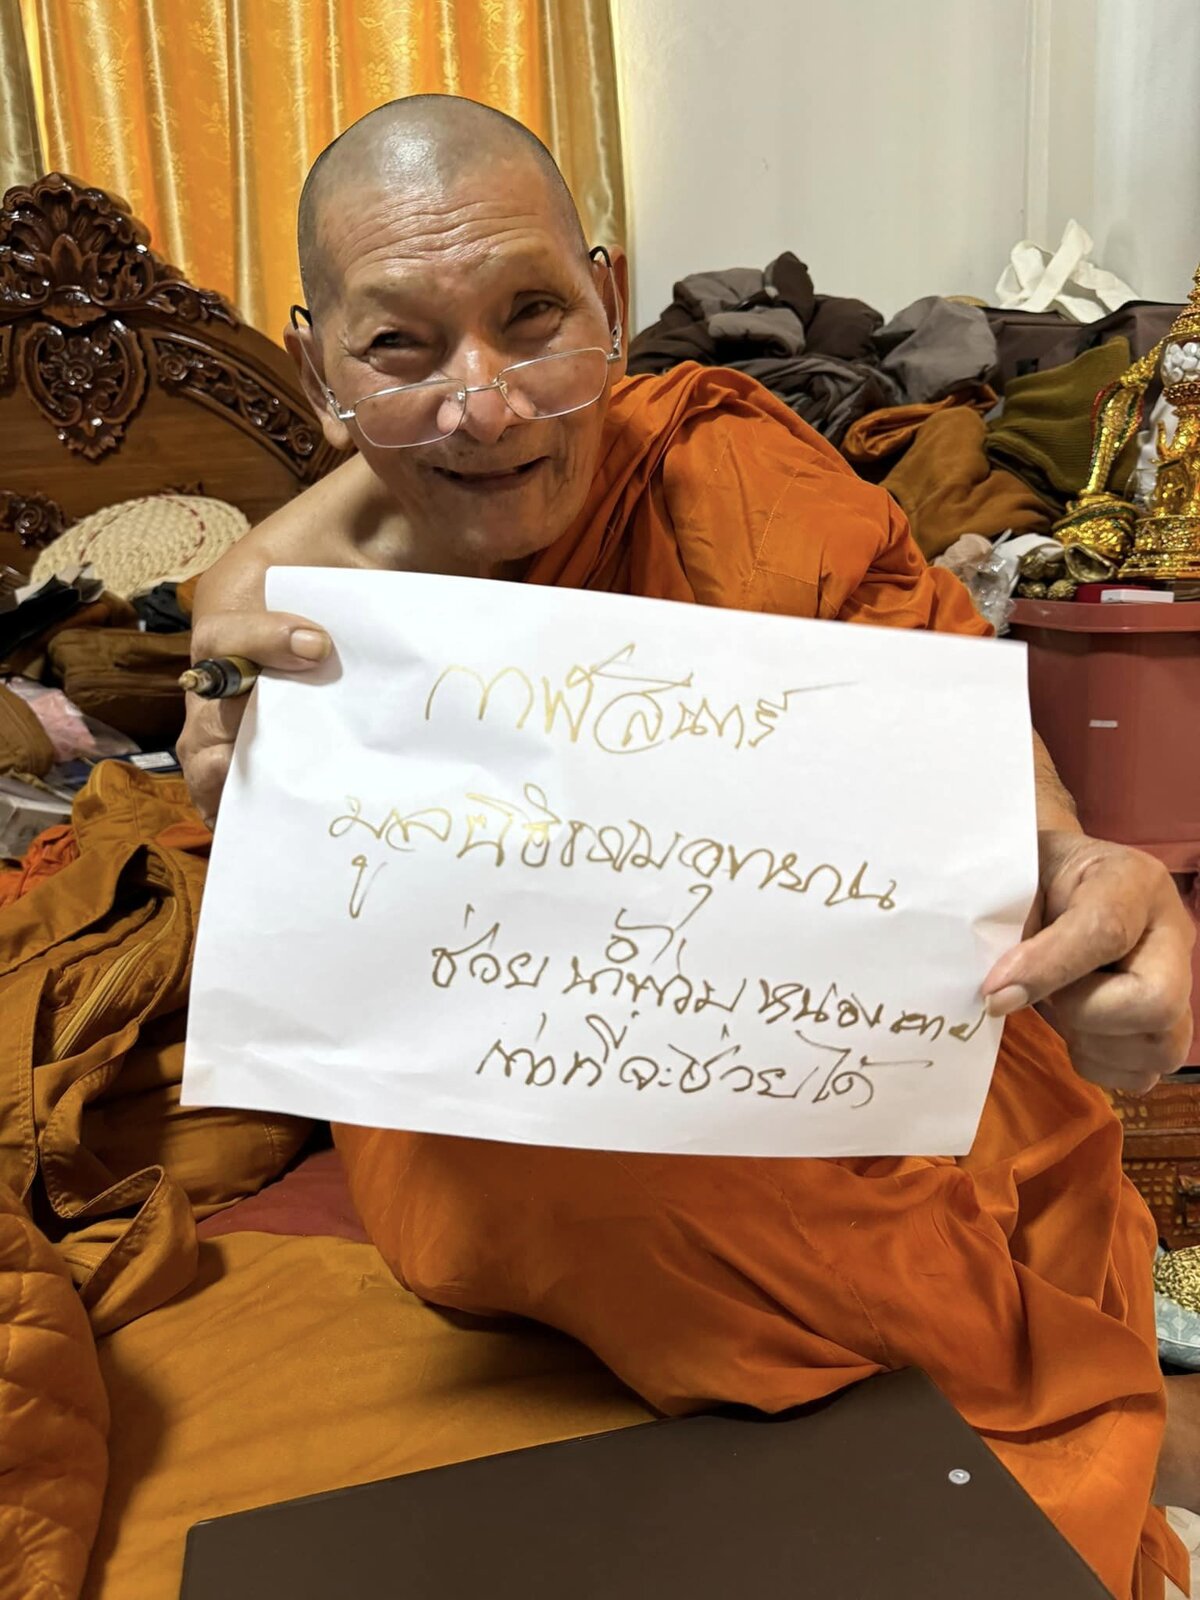 กาฬสินธุ์
มูลนิธิธรรมอุทยาน
ช่วยน้ำท่วม หนอง
เท่าที่จะช่วยได้